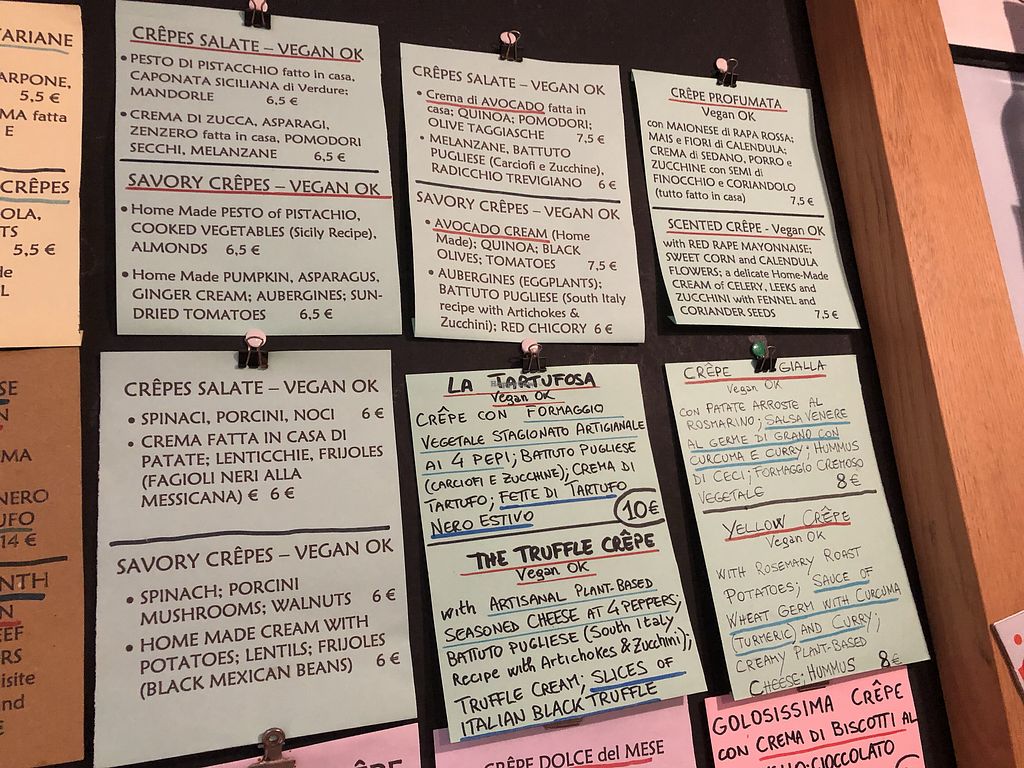 TARIANE
ARPONE,
5,5 €
MA fatta
E
CRÊPES
OLA,
TS
5,5 €
de
L
CRÊPES SALATE – VEGAN OK
• PESTO DI PISTACCHIO fatto in casa,
CAPONATA SICILIANA di Verdure;
MANDORLE 6,5 €
• CREMA DI ZUCCA, ASPARAGI,
ZENZERO fatta in casa, POMODORI
SECCHI, MELANZANE 6,5 €
SAVORY CRÊPES – VEGAN OK
• Home Made PESTO of PISTACHIO,
COOKED VEGETABLES (Sicily Recipe),
ALMONDS 6,5 €
• Home Made PUMPKIN, ASPARAGUS,
GINGER CREAM; AUBERGINES; SUN-
DRIED TOMATOES 6,5 €
CRÊPES SALATE – VEGAN OK
• Crema di AVOCADO fatta in
casa; QUINOA; POMODORI;
OLIVE TAGGIASCHE 7,5 €
• MELANZANE, BATTUTO
PUGLIESE (Carciofi e Zucchine),
RADICCHIO TREVIGIANO 6 €
SAVORY CRÊPES – VEGAN OK
• AVOCADO CREAM (Home
Made); QUINOA; BLACK
OLIVES; TOMATOES 7,5 €
• AUBERGINES (EGGPLANTS);
BATTUTO PUGLIESE (South Italy
recipe with Artichokes &
Zucchini); RED CHICORY 6 €
CRÊPE PROFUMATA
Vegan OK
con MAIONESE di RAPA ROSSA;
MAIS e FIORI di CALENDULA;
CREMA di SEDANO, PORRO e
ZUCCHINE con SEMI di
FINOCCHIO e CORIANDOLO
(tutto fatto in casa) 7,5 €
SCENTED CRÊPE - Vegan OK
with RED RAPE MAYONNAISE;
SWEET CORN and CALENDULA
FLOWERS; a delicate Home-Made
CREAM of CELERY, LEEKS and
ZUCCHINI with FENNEL and
CORIANDER SEEDS 7,5 €
SE
N
UMA
NERO
UFO
14 €
NTH
N
EEF
ORS
isite
and
€
CRÊPES SALATE – VEGAN OK
• SPINACI, PORCINI, NOCI 6 €
• CREMA FATTA IN CASA DI
PATATE; LENTICCHIE, FRIJOLES
(FAGIOLI NERI ALLA
MESSICANA) € 6 €
SAVORY CRÊPES – VEGAN OK
• SPINACH; PORCINI
MUSHROOMS; WALNUTS 6 €
• HOME MADE CREAM WITH
POTATOES; LENTILS; FRIJOLES
(BLACK MEXICAN BEANS) 6 €
LA TARTUFOSA
Vegan OK
CRÊPE CON FORMAGGIO
VEGETALE STAGIONATO ARTIGIANALE
AI 4 PEPI; BATTUTO PUGLIESE
(CARCIOFI E ZUCCHINE); CREMA DI
TARTUFO; FETTE DI TARTUFO
NERO ESTIVO 10€
THE TRUFFLE CRÊPE
Vegan OK
with ARTISANAL PLANT-BASED
SEASONED CHEESE AT 4 PEPPERS;
BATTUTO PUGLIESE (South Italy
Recipe with Artichokes & Zucchini);
TRUFFLE CREAM; SLICES OF
ITALIAN BLACK TRUFFLE
CRÊPE GIALLA
Vegan OK
CON PATATE ARROSTE AL
ROSMARINO; SALSA VENERE
AL GERME DI GRANO CON
CURCUMA E CURRY; HUMMUS
DI CECI; FORMAGGIO CREMOSO
VEGETALE 8€
YELLOW CRÊPE
Vegan OK
WITH ROSEMARY ROAST
POTATOES; SAUCE OF
WHEAT GERM WITH CURCUMA
(TURMERIC) AND CURRY;
CREAMY PLANT-BASED
CHEESE; HUMMUS 8€
CRÊPE DOLCE del MESE
GOLOSISSIMA CRÊPE
CON CREMA DI BISCOTTI AL
CIOCCOLATO